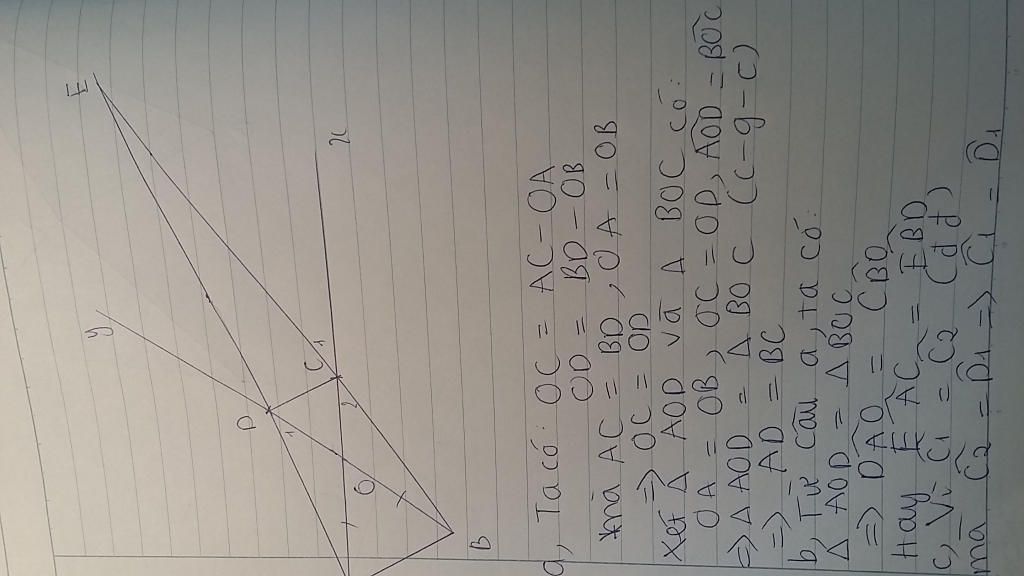 E
y
x
D
C
1
1
2
1
O
B
a, Ta có: OC = AC - OA
OD = BD - OB
mà AC = BD, OA = OB
=> OC = OD
Xét Δ AOD và Δ BOC có:
OA = OB, OC = OD, AOD = BOC
=> Δ AOD = Δ BOC (c-g-c)
=> AD = BC
b, Từ câu a, ta có:
Δ AOD = Δ BOC
=> DAO = CBO
Hay EAC = EBD
c, Vì C1 = C2 (dd)
mà C2 = D1 => C1 = D1